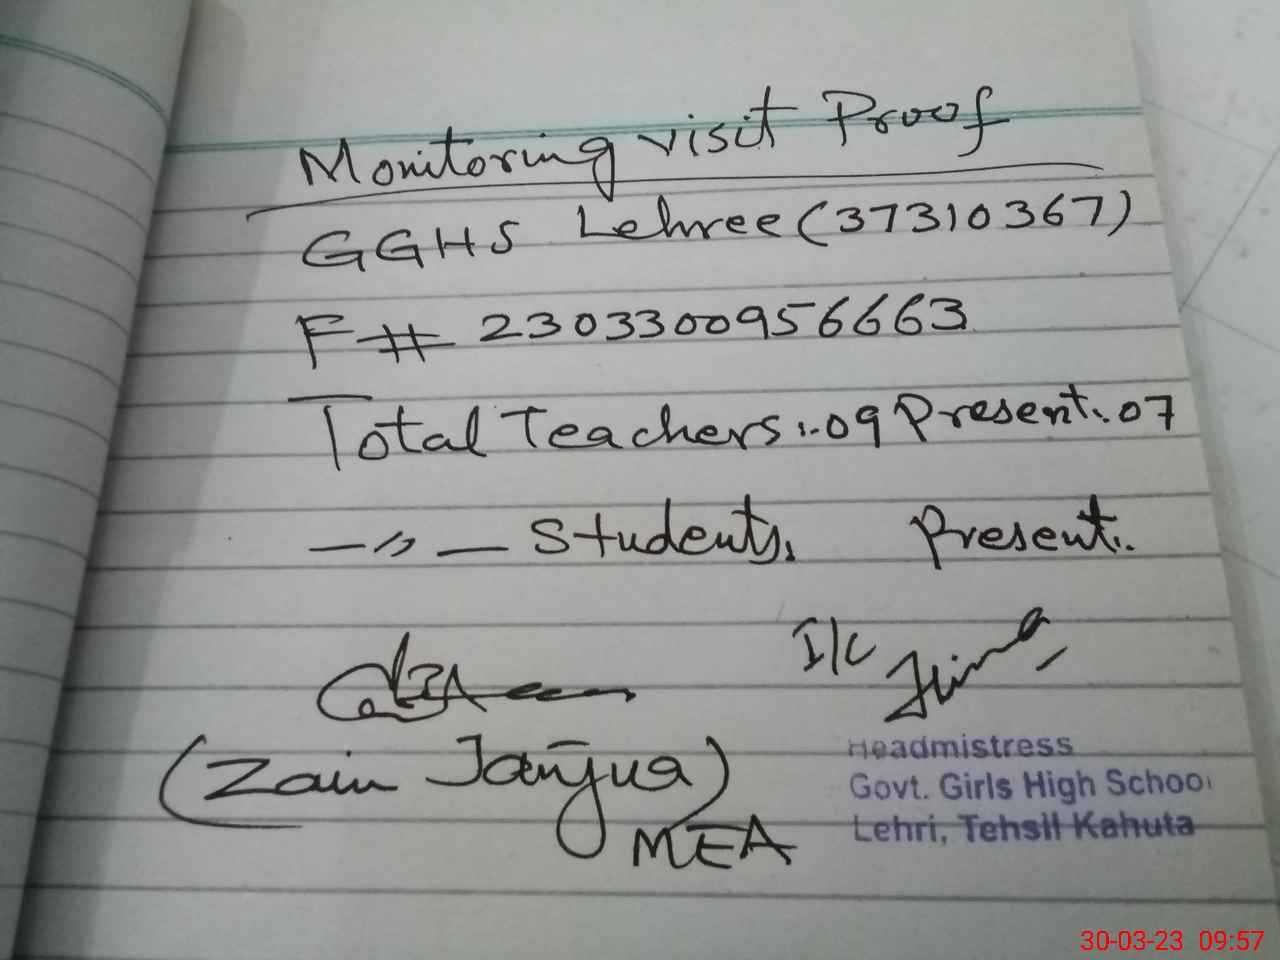 Monitoring visit Proof
GGHS Lehree (37310367)
F# 2303300956663
Total Teachers:-09 Present:.07
—〃— Students. Present:.
I/C
(Zain Janjua)
MEA
Headmistress
Govt. Girls High School
Lehri, Tehsil Kahuta
30-03-23 09:57